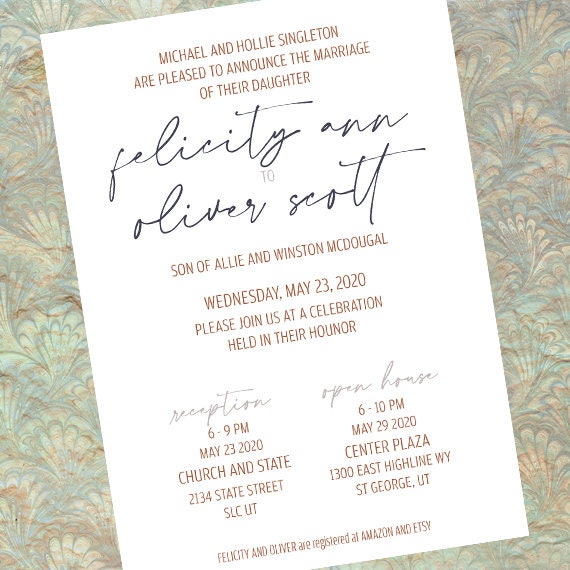 MICHAEL AND HOLLIE SINGLETON
ARE PLEASED TO ANNOUNCE THE MARRIAGE
OF THEIR DAUGHTER
felicity ann
TO
oliver scott
SON OF ALLIE AND WINSTON MCDOUGAL
WEDNESDAY, MAY 23, 2020
PLEASE JOIN US AT A CELEBRATION
HELD IN THEIR HOUNOR
reception
6 - 9 PM
MAY 23 2020
CHURCH AND STATE
2134 STATE STREET
SLC UT
open house
6 - 10 PM
MAY 29 2020
CENTER PLAZA
1300 EAST HIGHLINE WY
ST GEORGE, UT
FELICITY AND OLIVER are registered at AMAZON AND ETSY